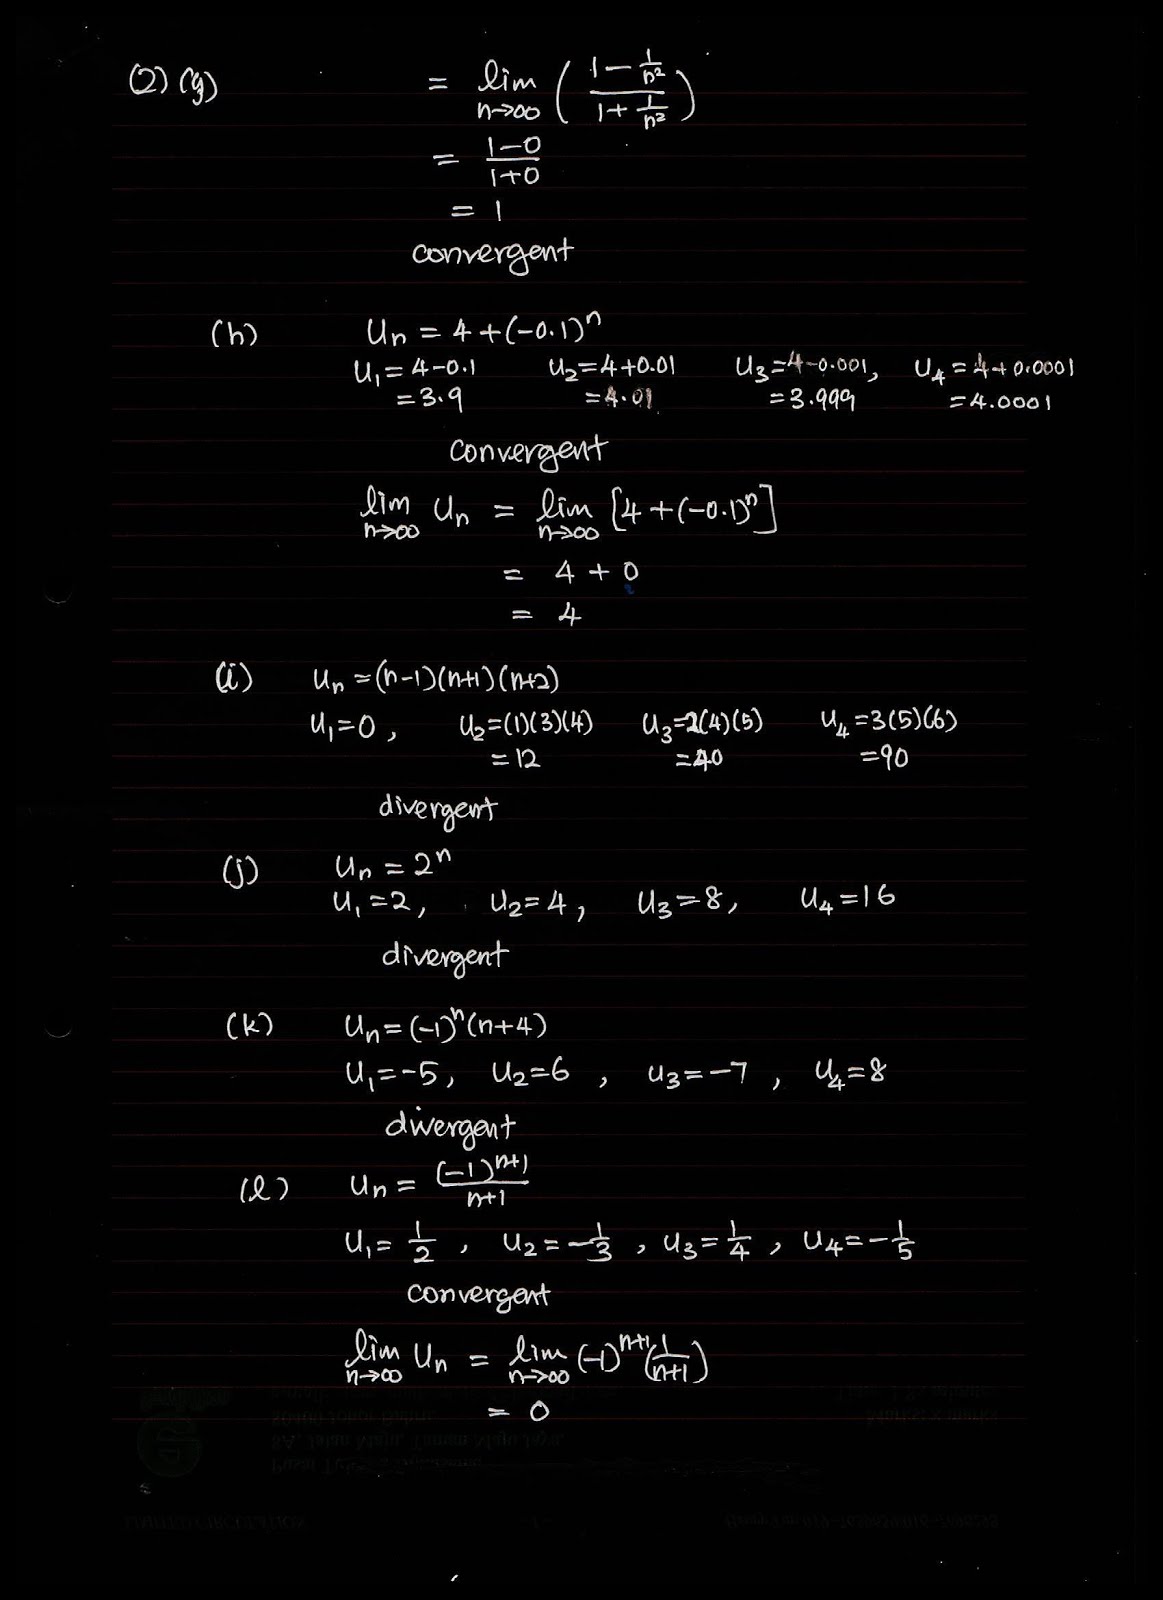 (2) (g) = lim n→∞ ( (1 − 1/n²) / (1 + 1/n²) )
= (1−0)/(1+0)
= 1
convergent
(h) Un = 4 + (−0.1)ⁿ
U₁ = 4−0.1 U₂ = 4+0.01 U₃ = 4−0.001, U₄ = 4+0.0001
= 3.9 = 4.01 = 3.999 = 4.0001
convergent
lim n→∞ Un = lim n→∞ [4 + (−0.1)ⁿ]
= 4 + 0
= 4
(i) Un = (n−1)(n+1)(n+2)
U₁ = 0, U₂ = (1)(3)(4) U₃ = 2(4)(5) U₄ = 3(5)(6)
= 12 = 40 = 90
divergent
(j) Un = 2ⁿ
U₁ = 2, U₂ = 4, U₃ = 8, U₄ = 16
divergent
(k) Un = (−1)ⁿ(n+4)
U₁ = −5, U₂ = 6, U₃ = −7, U₄ = 8
divergent
(l) Un = (−1)ⁿ⁺¹/(n+1)
U₁ = 1/2, U₂ = −1/3, U₃ = 1/4, U₄ = −1/5
convergent
lim n→∞ Un = lim n→∞ (−1)ⁿ⁺¹(1/(n+1))
= 0